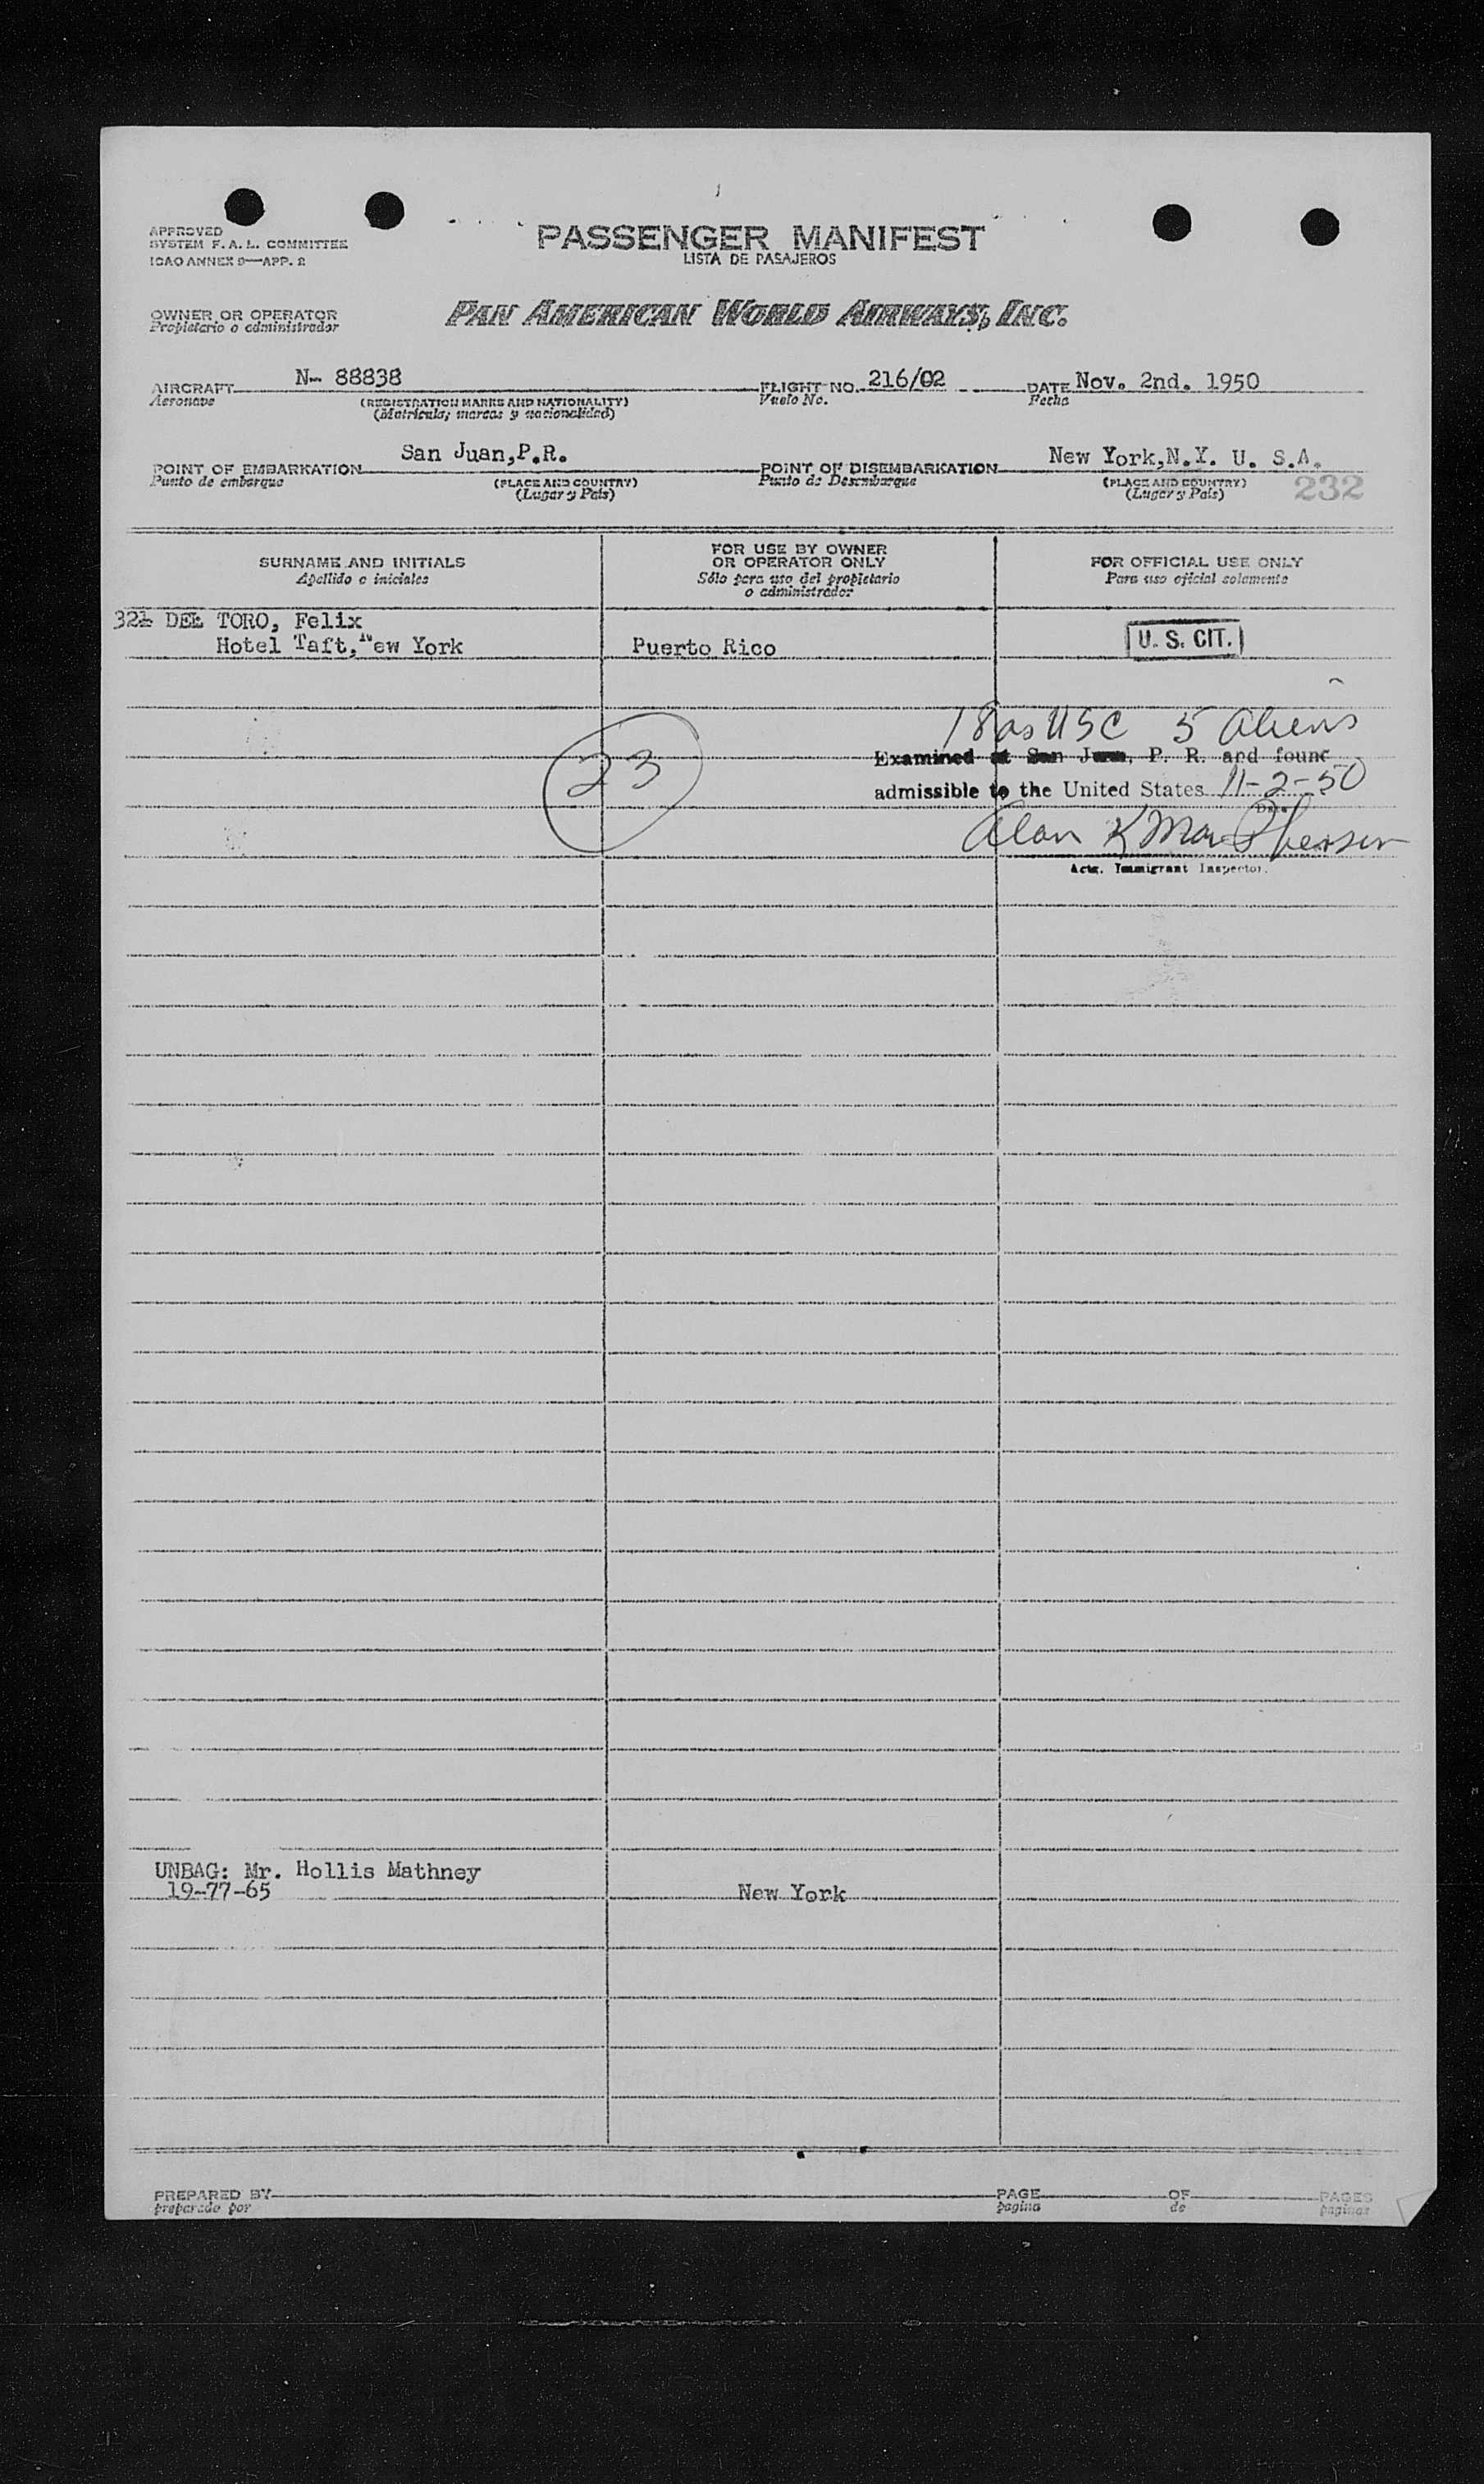 APPROVED
SYSTEM F. A. L. COMMITTEE
ICAO ANNEX 9—APP. 2
PASSENGER MANIFEST
LISTA DE PASAJEROS
OWNER OR OPERATOR
Propietario o administrador
PAN AMERICAN WORLD AIRWAYS, INC.
AIRCRAFT N- 88838 FLIGHT NO. 216/02 DATE Nov. 2nd. 1950
Aeronave (REGISTRATION MARKS AND NATIONALITY) Vuelo No. Fecha
(Matrícula; marcas y nacionalidad)
POINT OF EMBARKATION San Juan,P.R. POINT OF DISEMBARKATION New York,N.Y. U. S.A.
Punto de embarque (PLACE AND COUNTRY) Punto de Desembarque (PLACE AND COUNTRY)
(Lugar y País) (Lugar y País) 232
SURNAME AND INITIALS
Apellido e iniciales
FOR USE BY OWNER
OR OPERATOR ONLY
Sólo para uso del propietario
o administrador
FOR OFFICIAL USE ONLY
Para uso oficial solamente
DEL TORO, Felix
Hotel Taft, New York Puerto Rico U. S. CIT.
18 USC 5 aliens
23
Examined at San Juan, P. R. and found
admissible to the United States 11-2-50
Date
Alan K MacPherson
Actg. Immigrant Inspector.
UNBAG: Mr. Hollis Mathney
19-77-65 New York
PREPARED BY PAGE OF PAGES
preparado por pagina de paginas